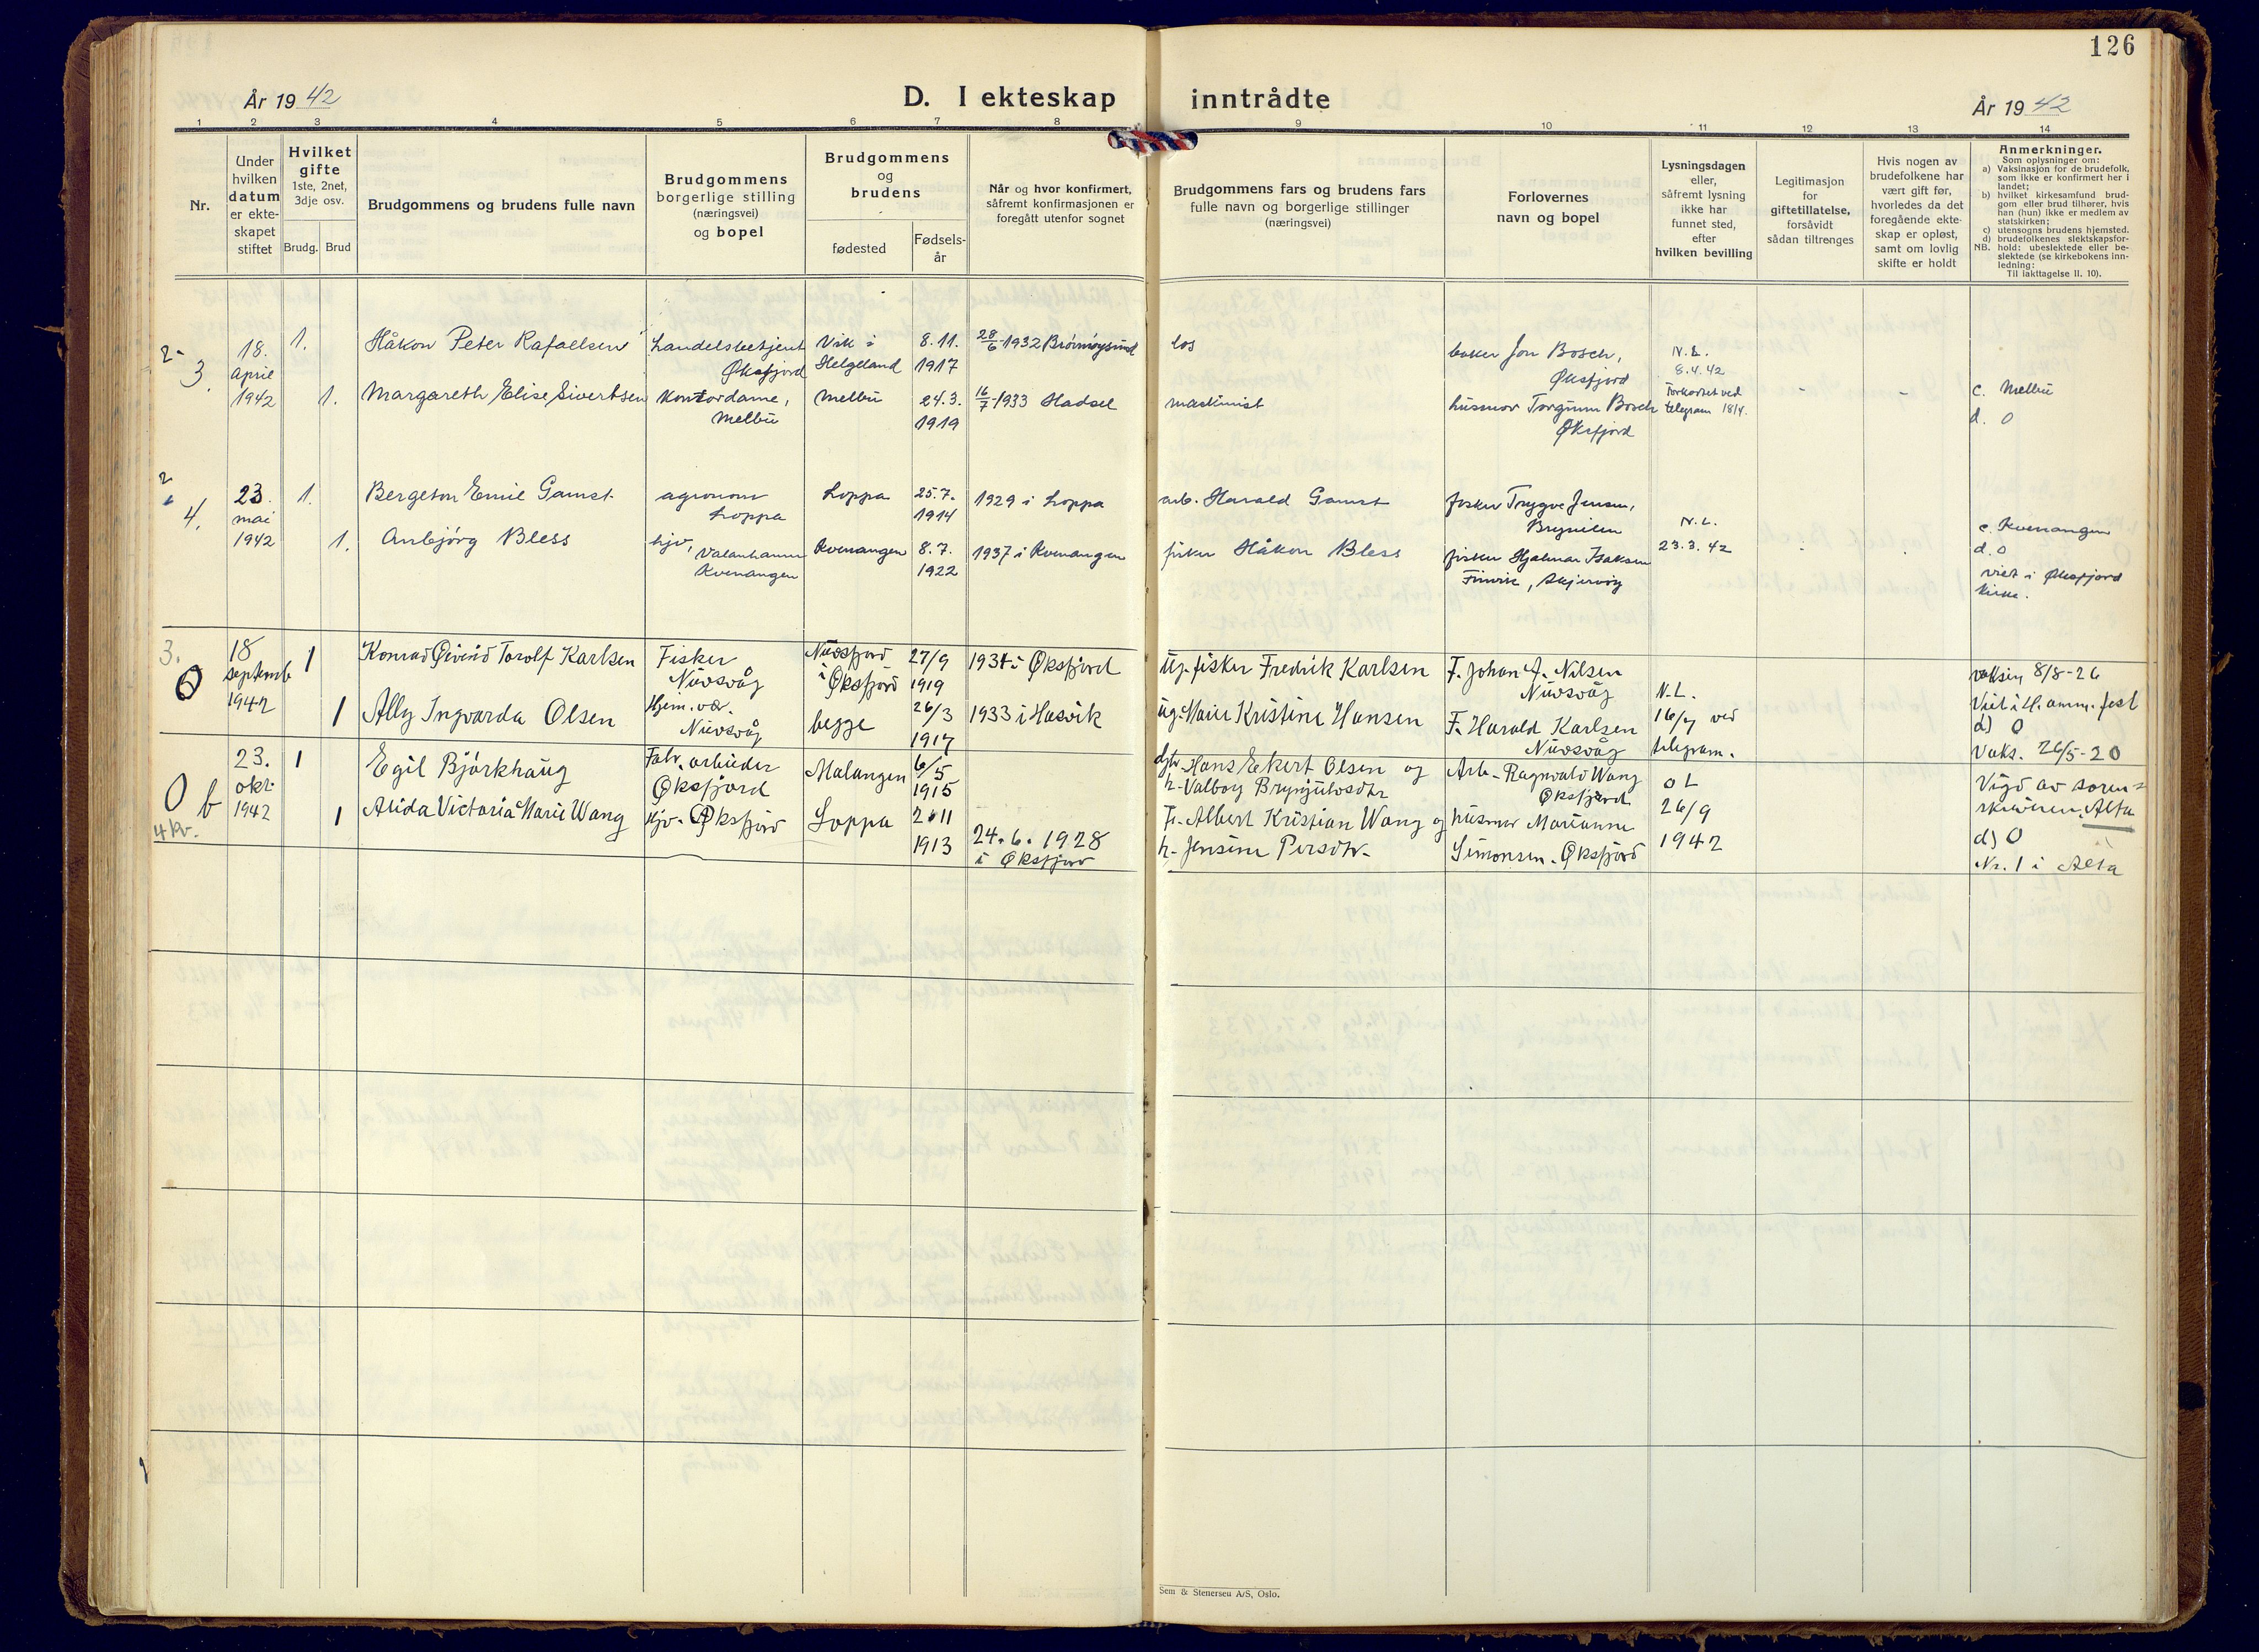 126
År 1942
D. I ekteskap inntrådte
År 1942
1 2 3 4 5 6 7 8 9 10 11 12 13 14
Nr.
Under
hvilken
datum
er ekte-
skapet
stiftet
Hvilket
gifte
1ste, 2net,
3dje osv.
Brudg. Brud
Brudgommens og brudens fulle navn
Brudgommens
borgerlige stilling
(næringsvei)
og bopel
Brudgommens
og
brudens
fødested
Fødsels-
år
Når og hvor konfirmert,
såfremt konfirmasjonen er
foregått utenfor sognet
Brudgommens fars og brudens fars
fulle navn og borgerlige stillinger
(næringsvei)
Forlovernes
navn og bopel
Lysningsdagen
eller,
såfremt lysning
ikke har
funnet sted,
efter
hvilken bevilling
Legitimasjon
for
giftetillatelse,
forsåvidt
sådan tiltrenges
Hvis nogen av
brudefolkene har
vært gift før,
hvorledes da det
foregående ekte-
skap er opløst,
samt om lovlig
skifte er holdt
Anmerkninger.
Som oplysninger om:
a) Vaksinasjon for de brudefolk,
som ikke er konfirmert her i
landet;
b) hvilket kirkesamfund brud-
gom eller brud tilhører, hvis
han (hun) ikke er medlem av
statskirken;
c) utensogns brudens hjemsted.
d) brudefolkenes slektskapsfor-
NB. hold: ubeslektede eller be-
slektede (se kirkebokens inn-
ledning:
Til iakttagelse II. 10).
2
3.
18.
April
1942
1.
Håkon Peter Rafaelsen
handelsbetjent
Øksfjord
Vik i
Helgeland
8.11.
1917
28/6 1932 Brönnöysund
los
baker Jon Bosch,
Øksfjord
N.L.
8.4.42
Torkortet ved
telegram 18/4.
1.
Margareth Elise Sivertsen
Kontordame,
Melbu
Melbu
24.3.
1919
16/7 1933 Hadsel
maskinist
husmor Torgunn Bosch
Øksfjord
c. Melbu
d. 0
2
4.
23.
mai
1942
1.
Bergeton Emil Gamst
agronom
Loppa
Loppa
25.7.
1914
1929 i Loppa
arb. Harald Gamst
fisker Trygve Jensen,
N.L.
23.3.42
1.
Anbjörg Bless
hjv.,
Valanhamn
Kvenangen
Kvenangen
8.7.
1922
1937 i Kvenangen
fisker Håkon Bless
fisker Hjalmar Isaksen
, Skjervöy
c. Kvenangen
d. 0
viet i Øksfjord
kirke.
3.
0
18
septemb
1942
1
Konrad Øivind Torolf Karlsen
Fisker
Nuvsvåg
Nuvsfjord
i Øksfjord
27/9
1919
1934 i Øksfjord
ug. fisker Fredrik Karlsen
F. Johan A. Nilsen
Nuvsvåg
N.L.
16/7 ved
telegram.
vaksin 8/8-26
Viet i H.amm.fest
d) 0
Vaks. 26/5-20
1
Ally Ingvarda Olsen
Hjem. vær.
Nuvsvåg
begge
26/3
1917
1933 i Hasvik
ug. Marie Kristine Hansen
F. Harald Karlsen
Nuvsvåg
0 b
4 kv.
23.
okt.
1942
1
Egil Björkhaug
Fabr. arbeider
Øksfjord
Malangen
6/5
1915
Hans Eckert Olsen og
h. Valborg Brynjulvsdtr
Arb. Ragnvald Wang
Øksfjord
O L
26/9
1942
Vigd av soren=
skriveren, Alta
d) 0
Nr. 1 i Alta
1
Alida Victoria Marie Wang
Hjv. Øksfjord
Loppa
2/11
1913
24.6.1928
i Øksfjord
F. Albert Kristian Wang og
h. Jensine Persdtr.
husmor Marianne
Simonsen. Øksfjord
Sem & Stenersen A/S, Oslo.